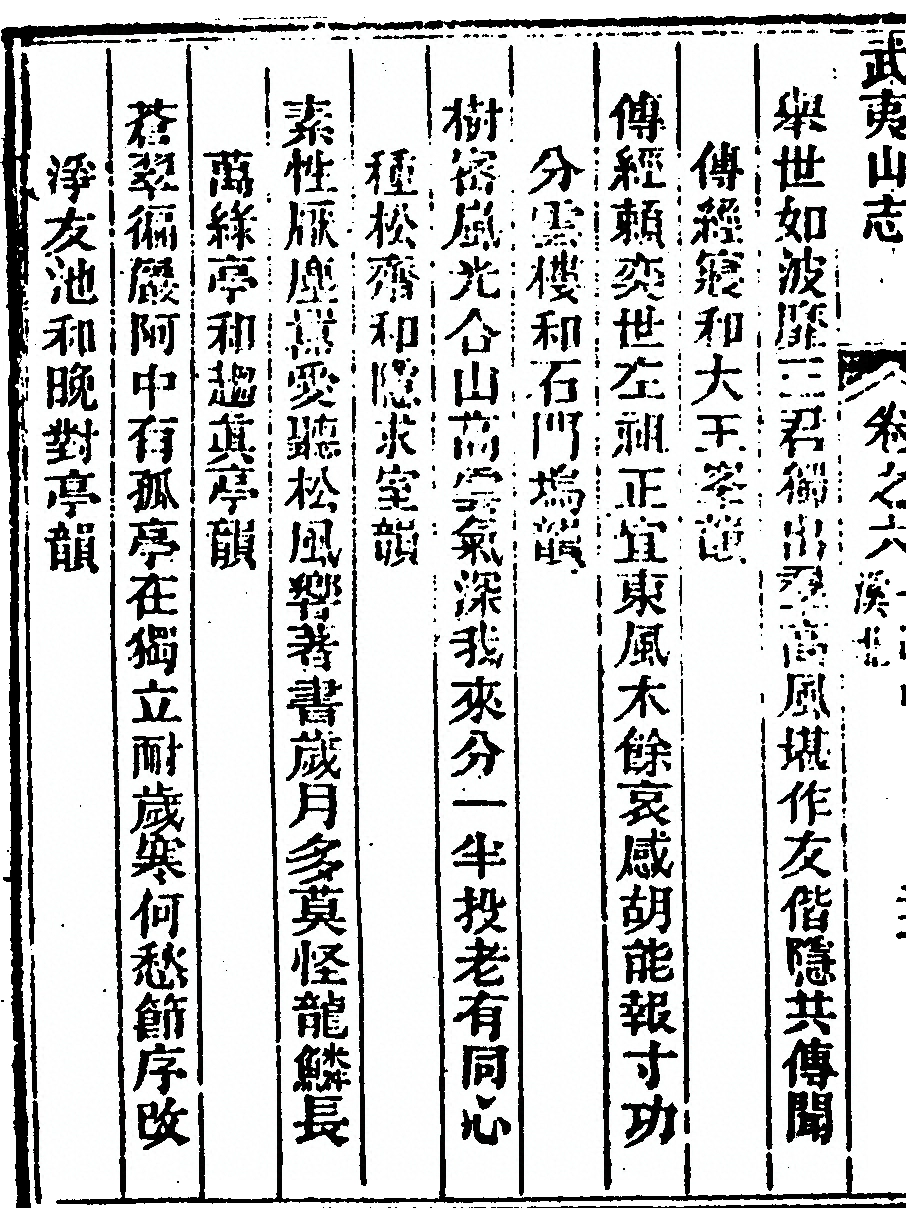 武夷山志 卷之六 溪北
舉世如波靡三君獨出群高風堪作友偕隱共傳聞
傳經寢和大王峯韻
傳經賴奕世左祖正宜東風木餘哀感胡能報寸功
分雲樓和石門塢韻
樹密風光合山高雲氣深我來分一半投老有同心
種松齋和隱求室韻
素性厭塵囂愛聽松風響著書歲月多莫怪龍鱗長
萬綠亭和趨真亭韻
蒼翠徧巖阿中有孤亭在獨立耐歲寒何愁節序改
淨友池和晚對亭韻